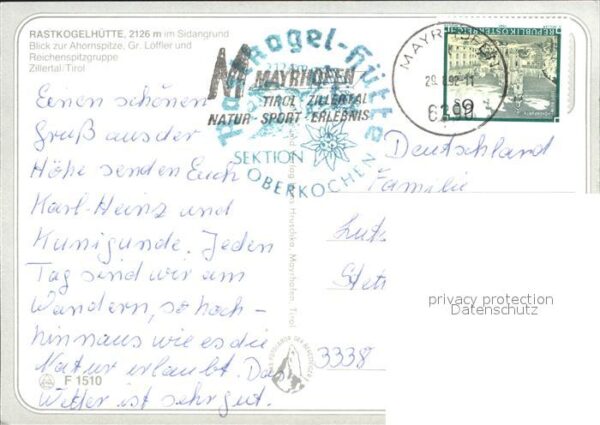 RASTKOGELHÜTTE, 2126 m im Sidangrund
Blick zur Ahornspitze, Gr. Löffler und
Reichenspitzgruppe
Zillertal: Tirol
Einen schönen
Gruß aus der
Höhe senden Euch
Karl-Heinz und
Kunigunde. Jeden
Tag sind wir am
Wandern, so hoch-
hinnaus wie es die
Natur erlaubt. Das
Wetter ist sehr gut.
F 1510
Rastkogel-Hütte
SEKTION
OBERKOCHEN
M MAYRHOFEN
TIROL · ZILLERTAL
NATUR - SPORT - ERLEBNIS
MAYRHOFEN
6290
REPUBLIK ÖSTERREICH
Hruschka, Mayrhofen, Tirol
Deutschland
Familie
3338
privacy protection
Datenschutz